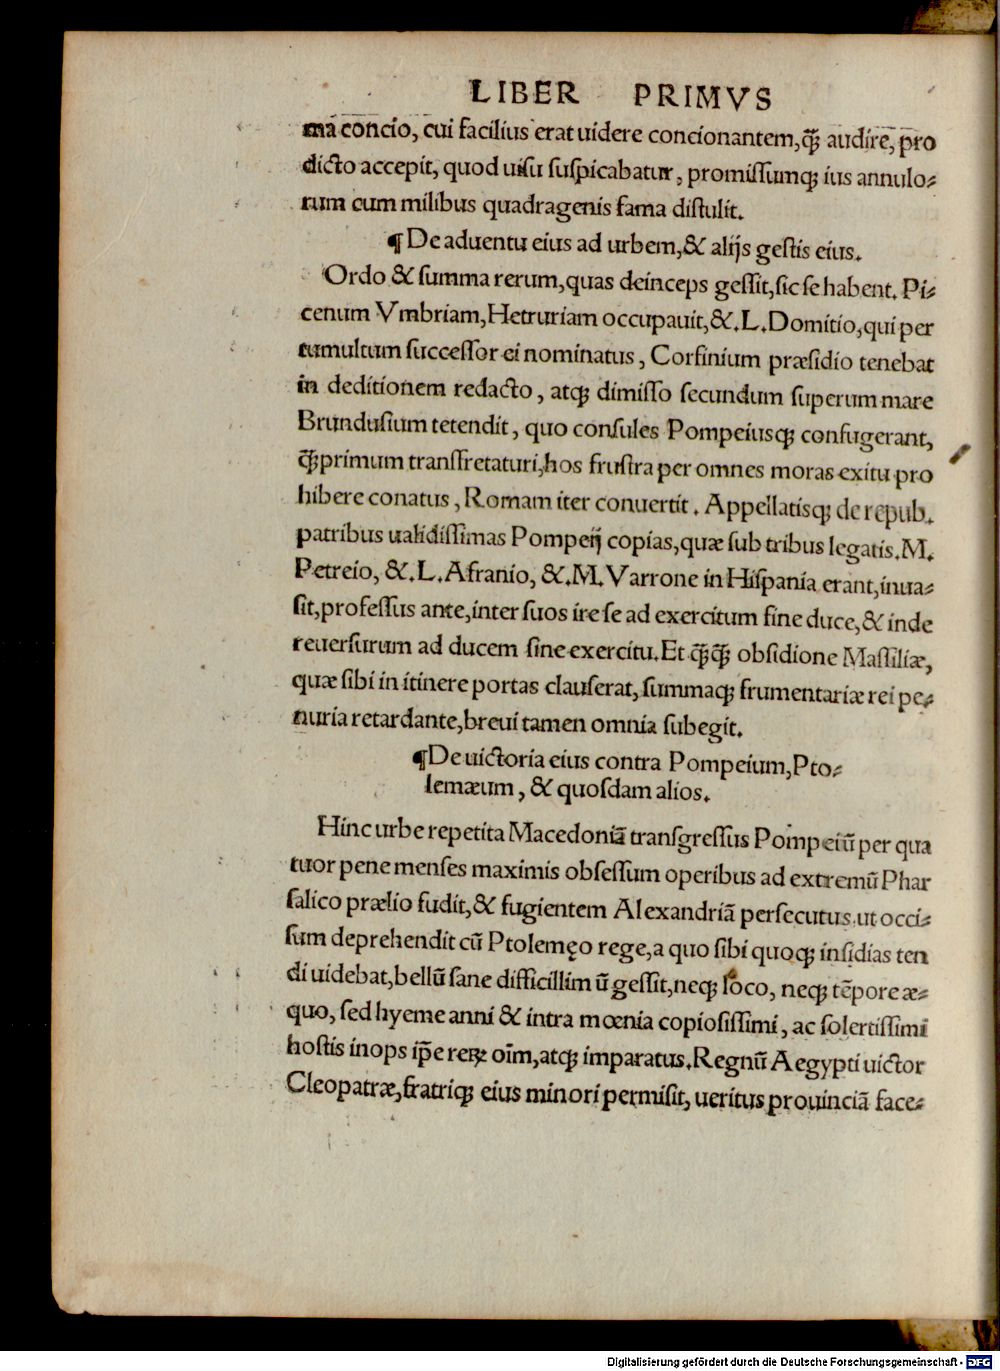 LIBER PRIMVS
ma concio, cui facilius erat uidere concionantem,q̃ audire, pro
dicto accepit, quod uisu suspicabatur, promissumq; ius annulo-
rum cum milibus quadragenis fama distulit.
¶De aduentu eius ad urbem,& alijs gestis eius.
Ordo & summa rerum,quas deinceps gessit,sic se habent. Pi-
cenum Vmbriam,Hetruriam occupauit,&.L.Domitio,qui per
tumultum successor ei nominatus, Corfinium præsidio tenebat
in deditionem redacto, atq; dimisso secundum superum mare
Brundusium tetendit, quo consules Pompeiusq; confugerant,
q̃primum transfretaturi,hos frustra per omnes moras exitu pro
hibere conatus, Romam iter conuertit. Appellatisq; de repub.
patribus ualidissimas Pompeij copias,quæ sub tribus legatis.M.
Petreio, &.L.Afranio, &.M.Varrone in Hispania erant,inua-
sit,professus ante,inter suos ire se ad exercitum sine duce,& inde
reuersurum ad ducem sine exercitu.Et q̃q̃ obsidione Massiliæ,
quæ sibi in itinere portas clauserat,summaq; frumentariæ rei pe-
nuria retardante,breui tamen omnia subegit.
¶De uictoria eius contra Pompeium,Pto-
lemæum, & quosdam alios.
Hinc urbe repetita Macedoniã transgressus Pompeiũ per qua
tuor pene menses maximis obsessum operibus ad extremũ Phar
salico prælio fudit,& fugientem Alexandriã persecutus,ut occi-
sum deprehendit cũ Ptolemęo rege,a quo sibi quoq; insidias ten
di uidebat,bellũ sane difficillimũ gessit,neq; loco, neq; tẽpore æ-
quo, sed hyeme anni & intra mœnia copiosissimi, ac solertissimi
hostis inops ip̃e reꝝ oĩm,atq; imparatus.Regnũ Aegypti uictor
Cleopatræ,fratriq; eius minori permisit, ueritus prouinciã face-
Digitalisierung gefördert durch die Deutsche Forschungsgemeinschaft - DFG